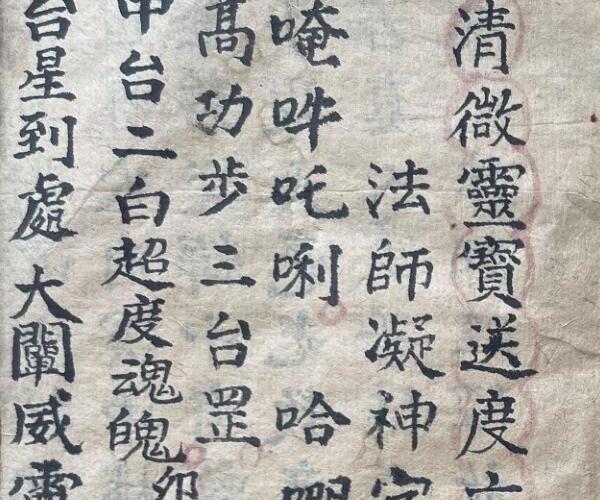 清微靈寶送度
法師凝神
唵吽吒唎 哈
髙功步三台罡
中台二白超度魂魄
台星到處大闡威靈